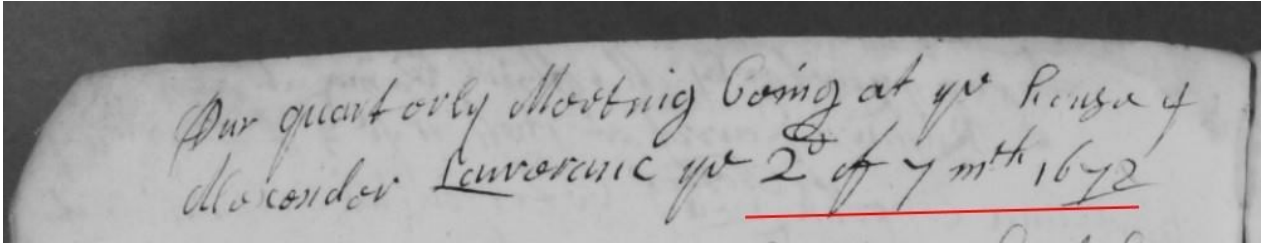 Our quarterly Meeting being at ye house of
Alexander Laweranc ye 2d of 7 mth 1672